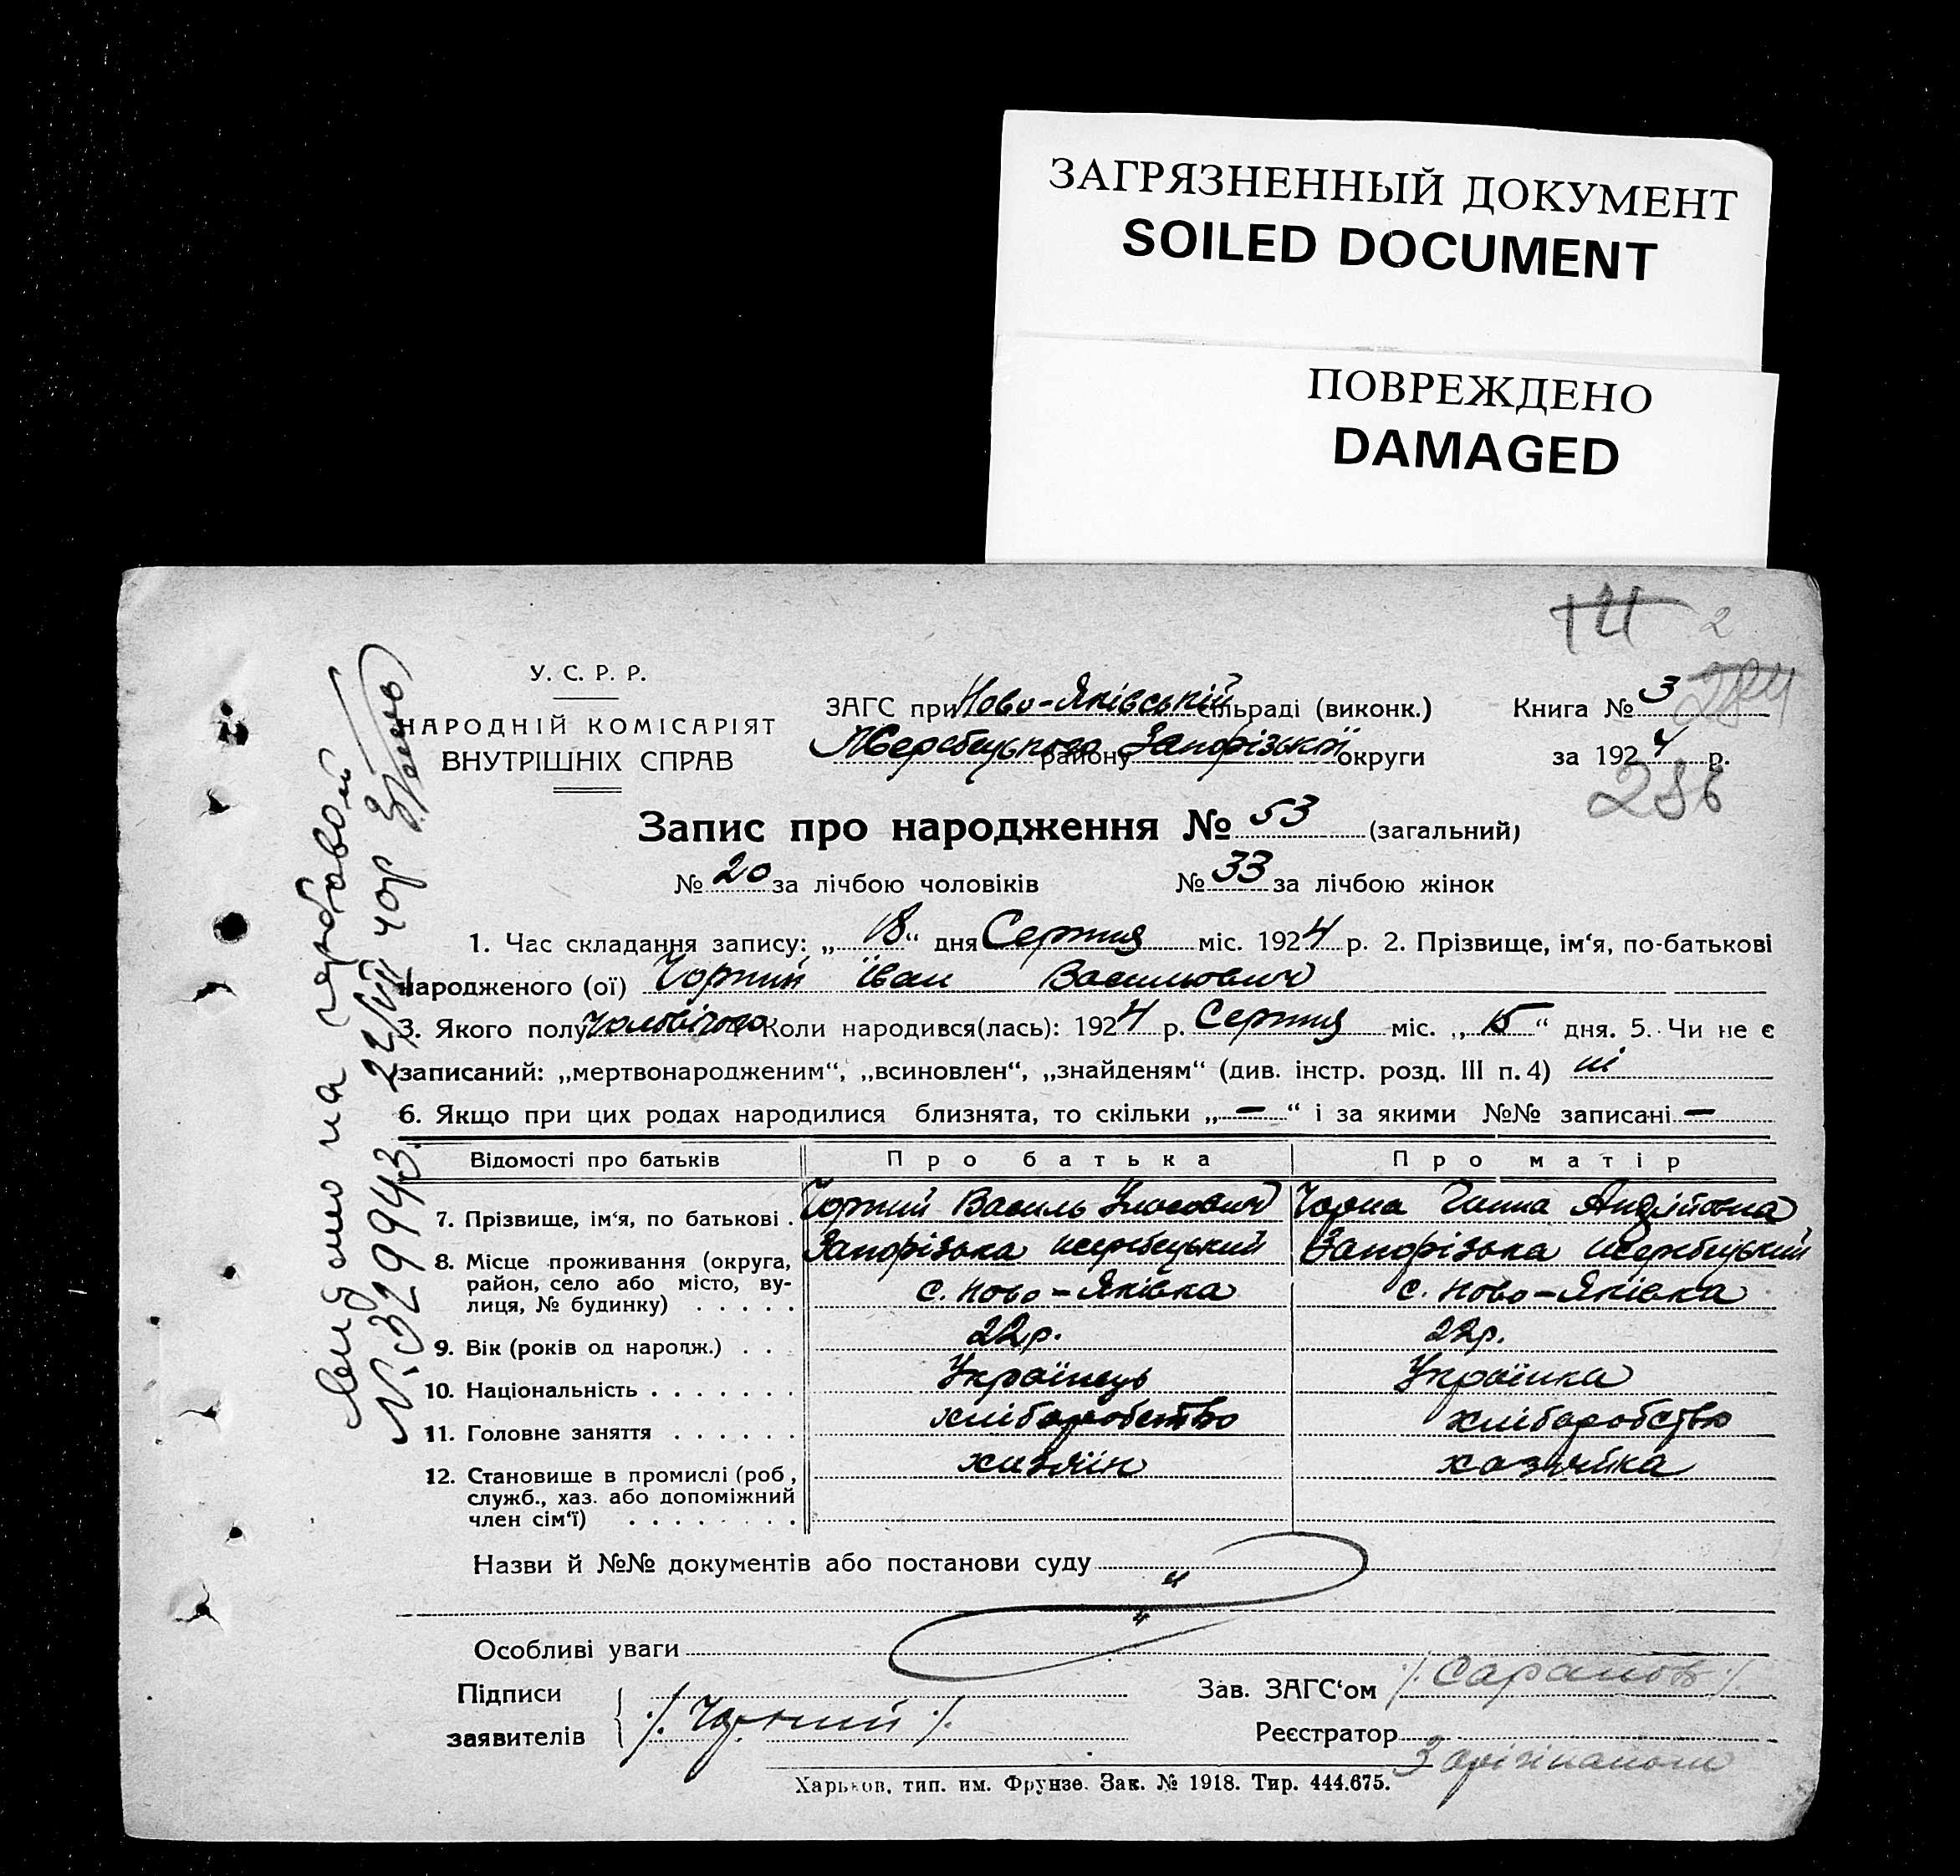 ЗАГРЯЗНЕННЫЙ ДОКУМЕНТ
SOILED DOCUMENT
ПОВРЕЖДЕНО
DAMAGED
14 2
284
286
У. С. Р. Р.
НАРОДНІЙ КОМІСАРІЯТ
ВНУТРІШНІХ СПРАВ
ЗАГС при Ново-Яківській сільраді (виконк.)
Жеребецького району Запорізької округи
Книга № 3
за 1924 р.
Запис про народження № 53 (загальний)
№ 20 за лічбою чоловіків № 33 за лічбою жінок
1. Час складання запису: „18“ дня Серпня міс. 1924 р. 2. Прізвище, ім‘я, по-батькові
народженого (ої) Чорний Іван Васильович
3. Якого полу Чоловічого Коли народився(лась): 1924 р. Серпня міс. „15“ дня. 5. Чи не є
записаний: „мертвонародженим“, „всиновлен“, „знайденям“ (див. інстр. розд. III п. 4) ні
6. Якщо при цих родах народилися близнята, то скільки „—“ і за якими №№ записані —
Відомості про батьків Про батька Про матір
7. Прізвище, ім‘я, по батькові . Чорний Василь Уласович Чорна Ганна Андрійовна
8. Місце проживання (округа, Запорізька жеребецький Запорізька жеребецький
район, село або місто, ву-
лиця, № будинку) . . . . . с. Ново-Яківка с. Ново-Яківка
9. Вік (років од народж.) . . . 22 р. 22 р.
10. Національність . . . . . . . Українець Українка
11. Головне заняття . . . . . . хліборобство хліборобство
12. Становище в промислі (роб., хазяїн хазяйка
служб., хаз. або допоміжний
член сім‘ї) . . . . . . . .
Назви й №№ документів або постанови суду „
„
Особливі уваги
Підписи
заявителів /. Чорний /.
Зав. ЗАГС‘ом /. Сарапов /.
Реєстратор
З оригіналом
Харьков, тип. им. Фрунзе. Зак. № 1918. Тир. 444.675.
Видано на
N. 329943. 22/VII